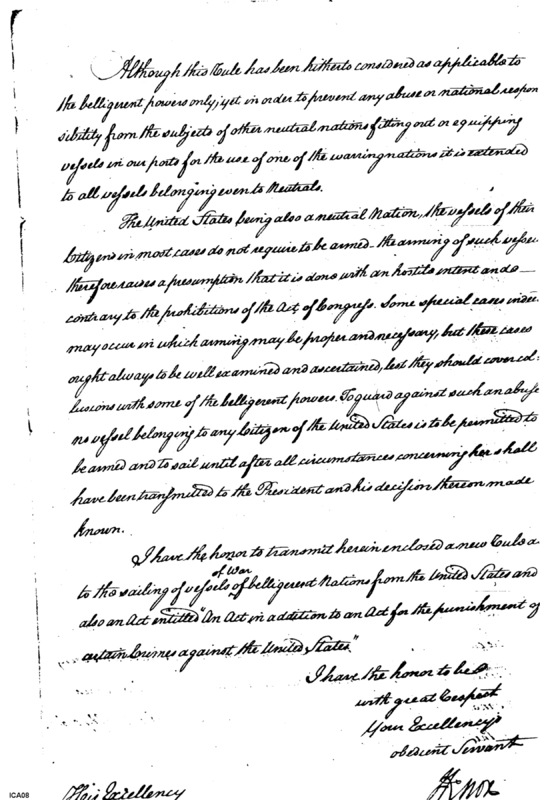 Although this Rule has been hitherto considered as applicable to
the belligerent powers only; yet in order to prevent any abuse or national respon
sibility from the subjects of other neutral nations fitting out or equipping
vessels in our ports for the use of one of the warring nations it is extended
to all vessels belonging even to Neutrals.
The United States being also a neutral Nation, the vessels of their
Citizens in most cases do not require to be armed - the arming of such vessel
therefore raises a presumption that it is done with an hostile intent and
contrary to the prohibitions of the Act of Congress. Some special cases indee
may occur in which arming may be proper and necessary, but these cases
ought always to be well examined and ascertained, lest they should cover col=
lusions with some of the belligerent powers. To guard against such an abuse
no vessel belonging to any Citizen of the United States is to be permitted to
be armed and to sail until after all circumstances concerning her shall
have been transmitted to the President and his decision thereon made
known.
I have the honor to transmit herein enclosed a new Rule a
of War
to the sailing of vessels of belligerent Nations from the United States and
also an Act entitled "An Act in addition to an Act for the punishment of
certain Crimes against the United States."
I have the honor to be
with great Respect
Your Excellency's
obedient Servant
HKnox
His Excellency
ICA08